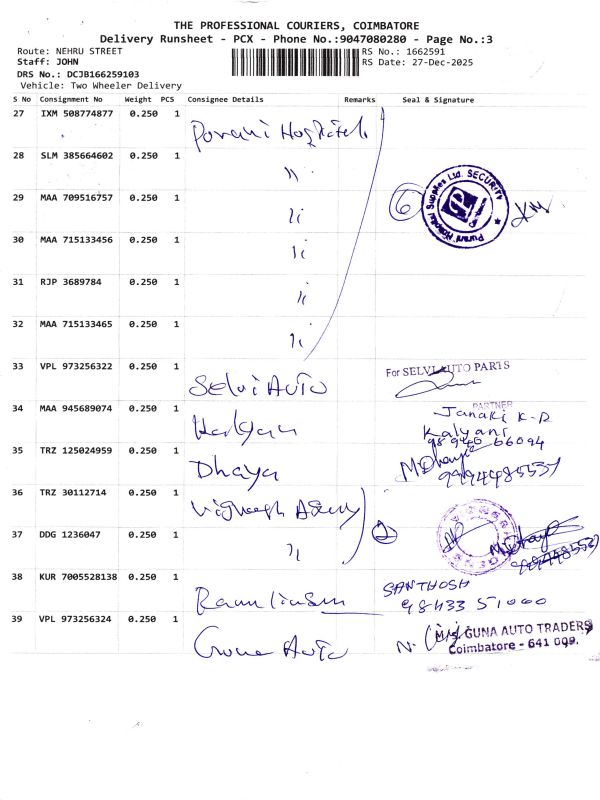 THE PROFESSIONAL COURIERS, COIMBATORE
Delivery Runsheet - PCX - Phone No.:9047080280 - Page No.:3
Route: NEHRU STREET
RS No.: 1662591
Staff: JOHN
RS Date: 27-Dec-2025
DRS No.: DCJB166259103
Vehicle: Two Wheeler Delivery
S No Consignment No Weight PCS Consignee Details Remarks Seal & Signature
27 IXM 508774877 0.250 1 Purani Hospital
28 SLM 385664602 0.250 1 "
29 MAA 709516757 0.250 1 " 6
Purani Hospital Supplies Ltd. SECURITY
30 MAA 715133456 0.250 1 "
31 RJP 3689784 0.250 1 "
32 MAA 715133465 0.250 1 "
33 VPL 973256322 0.250 1 Selvi Auto
For SELVI AUTO PARTS
PARTNER
34 MAA 945689074 0.250 1 Janaki K-R
Kalyani
66094
35 TRZ 125024959 0.250 1 Dhaya
36 TRZ 30112714 0.250 1 Vignesh
37 DDG 1236047 0.250 1 " 2
38 KUR 7005528138 0.250 1 SANTHOSH
98433 51000
39 VPL 973256324 0.250 1 Guna Auto N.
M/s GUNA AUTO TRADERS
Coimbatore - 641 009.